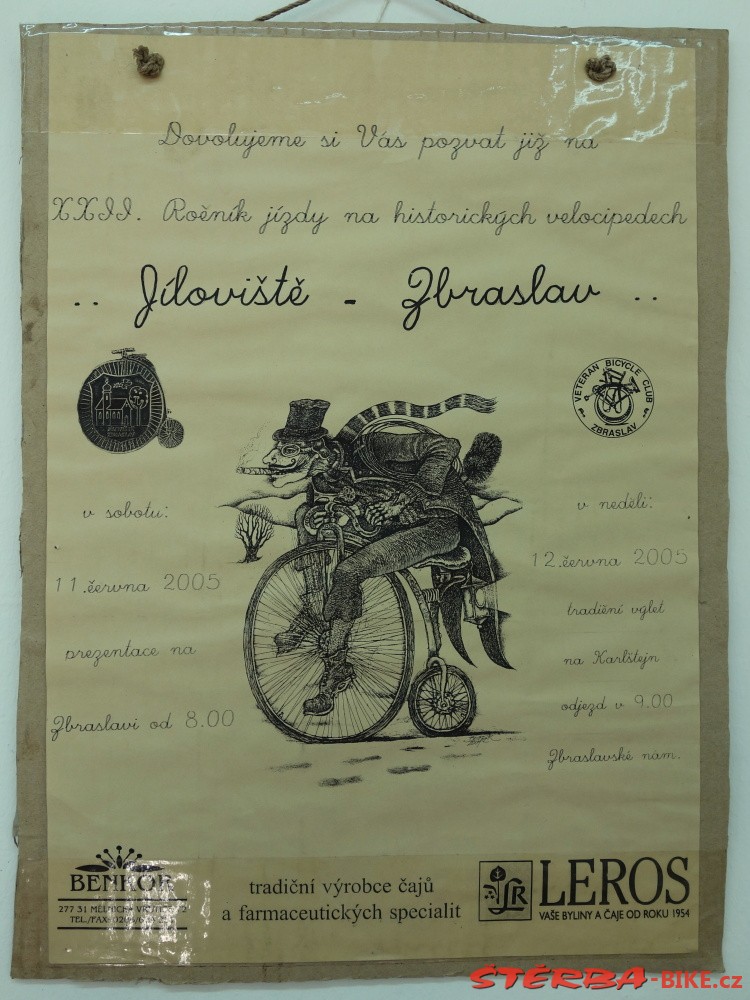 Dovolujeme si Vás pozvat již na
XXII. Ročník jízdy na historických velocipedech
.. Jíloviště - Zbraslav ..
VETERAN BICYCLE CLUB
ZBRASLAV
v sobotu:
11.června 2005
prezentace na
Zbraslavi od 8.00
v neděli:
12.června 2005
tradiční výlet
na Karlštejn
odjezd v 9.00
Zbraslavské nám.
BENKOR
277 31
TEL./FAX:
tradiční výrobce čajů
a farmaceutických specialit
LR
LEROS
VAŠE BYLINY A ČAJE OD ROKU 1954
ŠTĚRBA-BIKE.cz